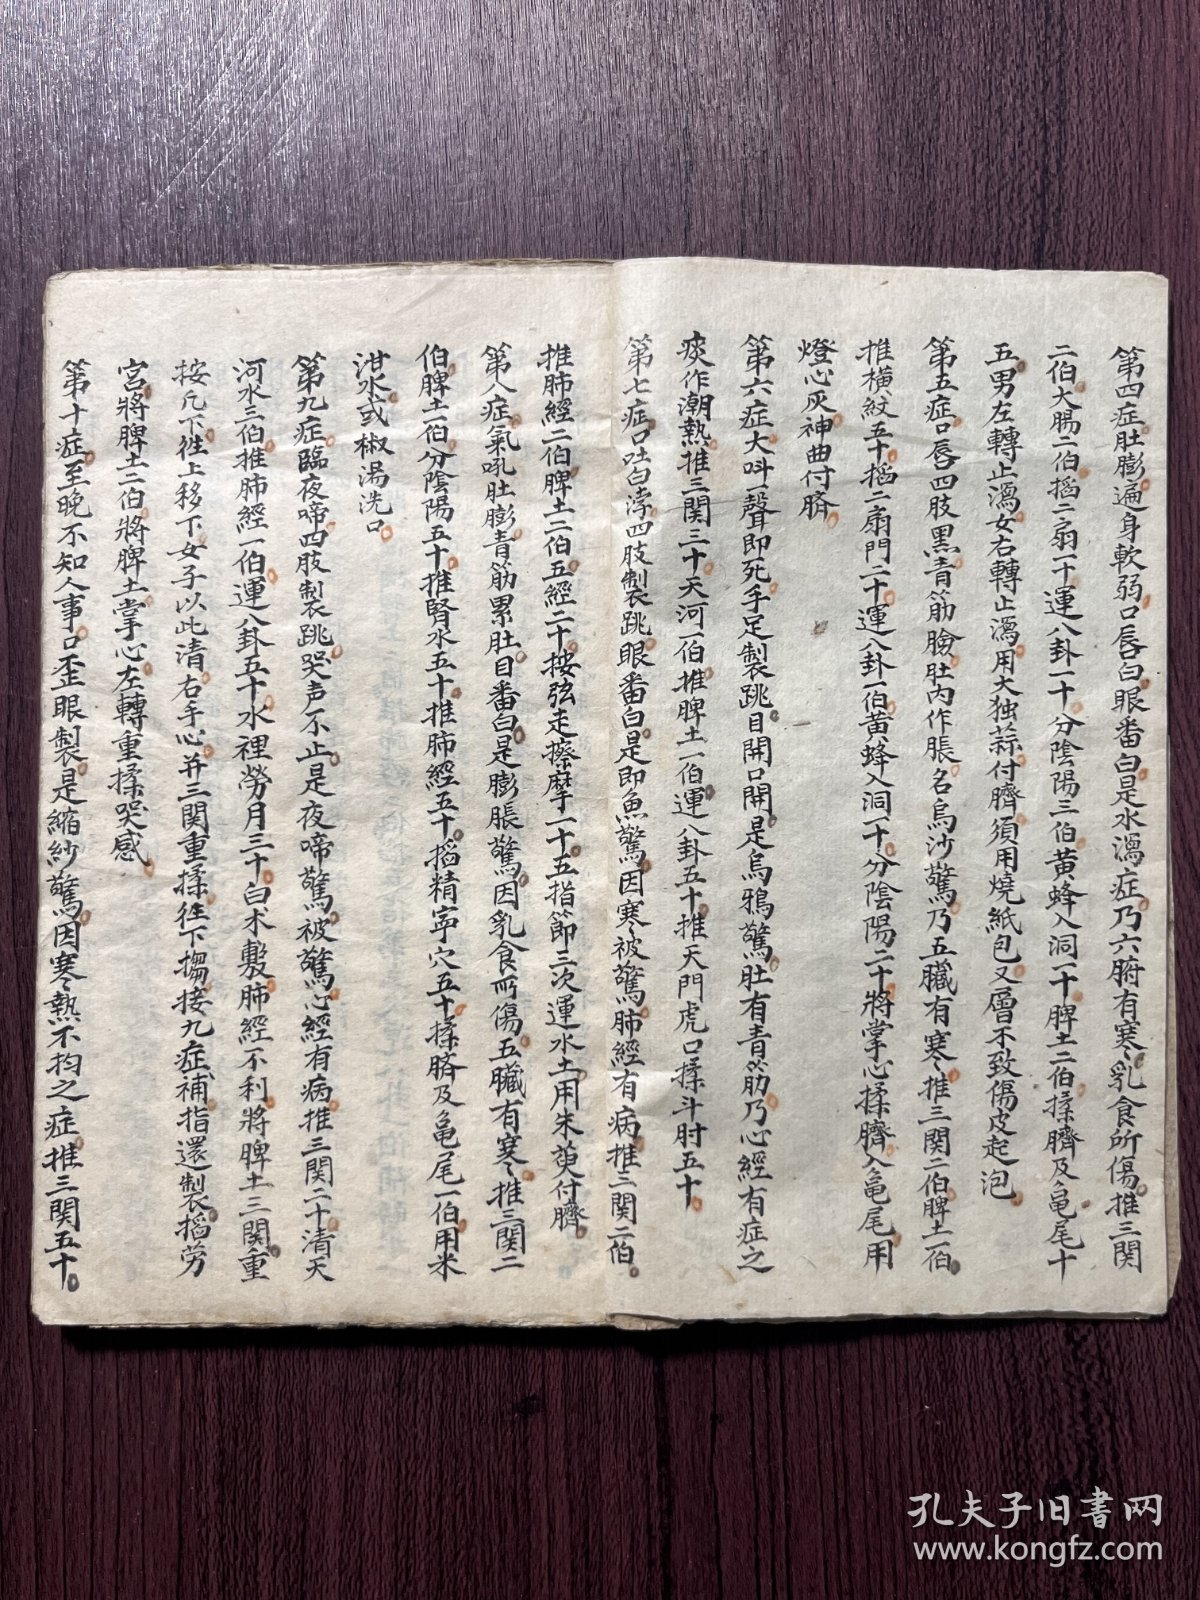 第四症肚膨遍身軟弱口唇白眼番白是水瀉症乃六腑有寒乳食所傷推三関
二伯大腸二伯搯二扇一十運八卦一十分陰陽三伯黄蜂入洞一十脾土二伯揉臍及亀尾十
五男左轉止瀉女右轉止瀉用大独蒜付臍須用燒紙包又層不致傷皮起泡
第五症口唇四肢黒青筋臉肚内作脹名烏沙驚乃五臟有寒推三関二伯脾土一伯
推横紋五十搯二扇門二十運八卦一伯黄蜂入洞一十分陰陽二十將掌心揉臍入亀尾用
燈心灰神曲付臍
第六症大呌一聲即死手足製跳目開口開是烏鴉驚肚有青筋乃心經有症之
痰作潮熱推三関三十天河一伯推脾土一伯運八卦五十推天門虎口揉斗肘五十
第七症口吐白浡四肢製跳眼番白是即魚驚因寒被驚肺經有病推三関二伯
推肺經二伯脾土二伯五經二十按弦走搽摩一十五指節三次運水土用朱萸付臍
第八症氣吼肚膨青筋累肚目番白是膨脹驚因乳食所傷五臟有寒推三関二
伯脾土一伯分陰陽五十推腎水五十推肺經五十搯精寧穴五十揉臍及亀尾一伯用米
泔水或椒湯洗口
第九症臨夜啼四肢製跳哭声不止是夜啼驚被驚心經有病推三関二十清天
河水三伯推肺經一伯運八卦五十水裡勞月三十白术敷肺經不利將脾土三関重
按凡下往上移下女子以此清右手心并三関重揉徃下搊接九症補指還製搯劳
宮將脾土二伯將脾土掌心左轉重揉哭感
第十症至晚不知人事口歪眼製是縮紗驚因寒熱不均之症推三関五十
孔夫子旧書网
www.kongfz.com